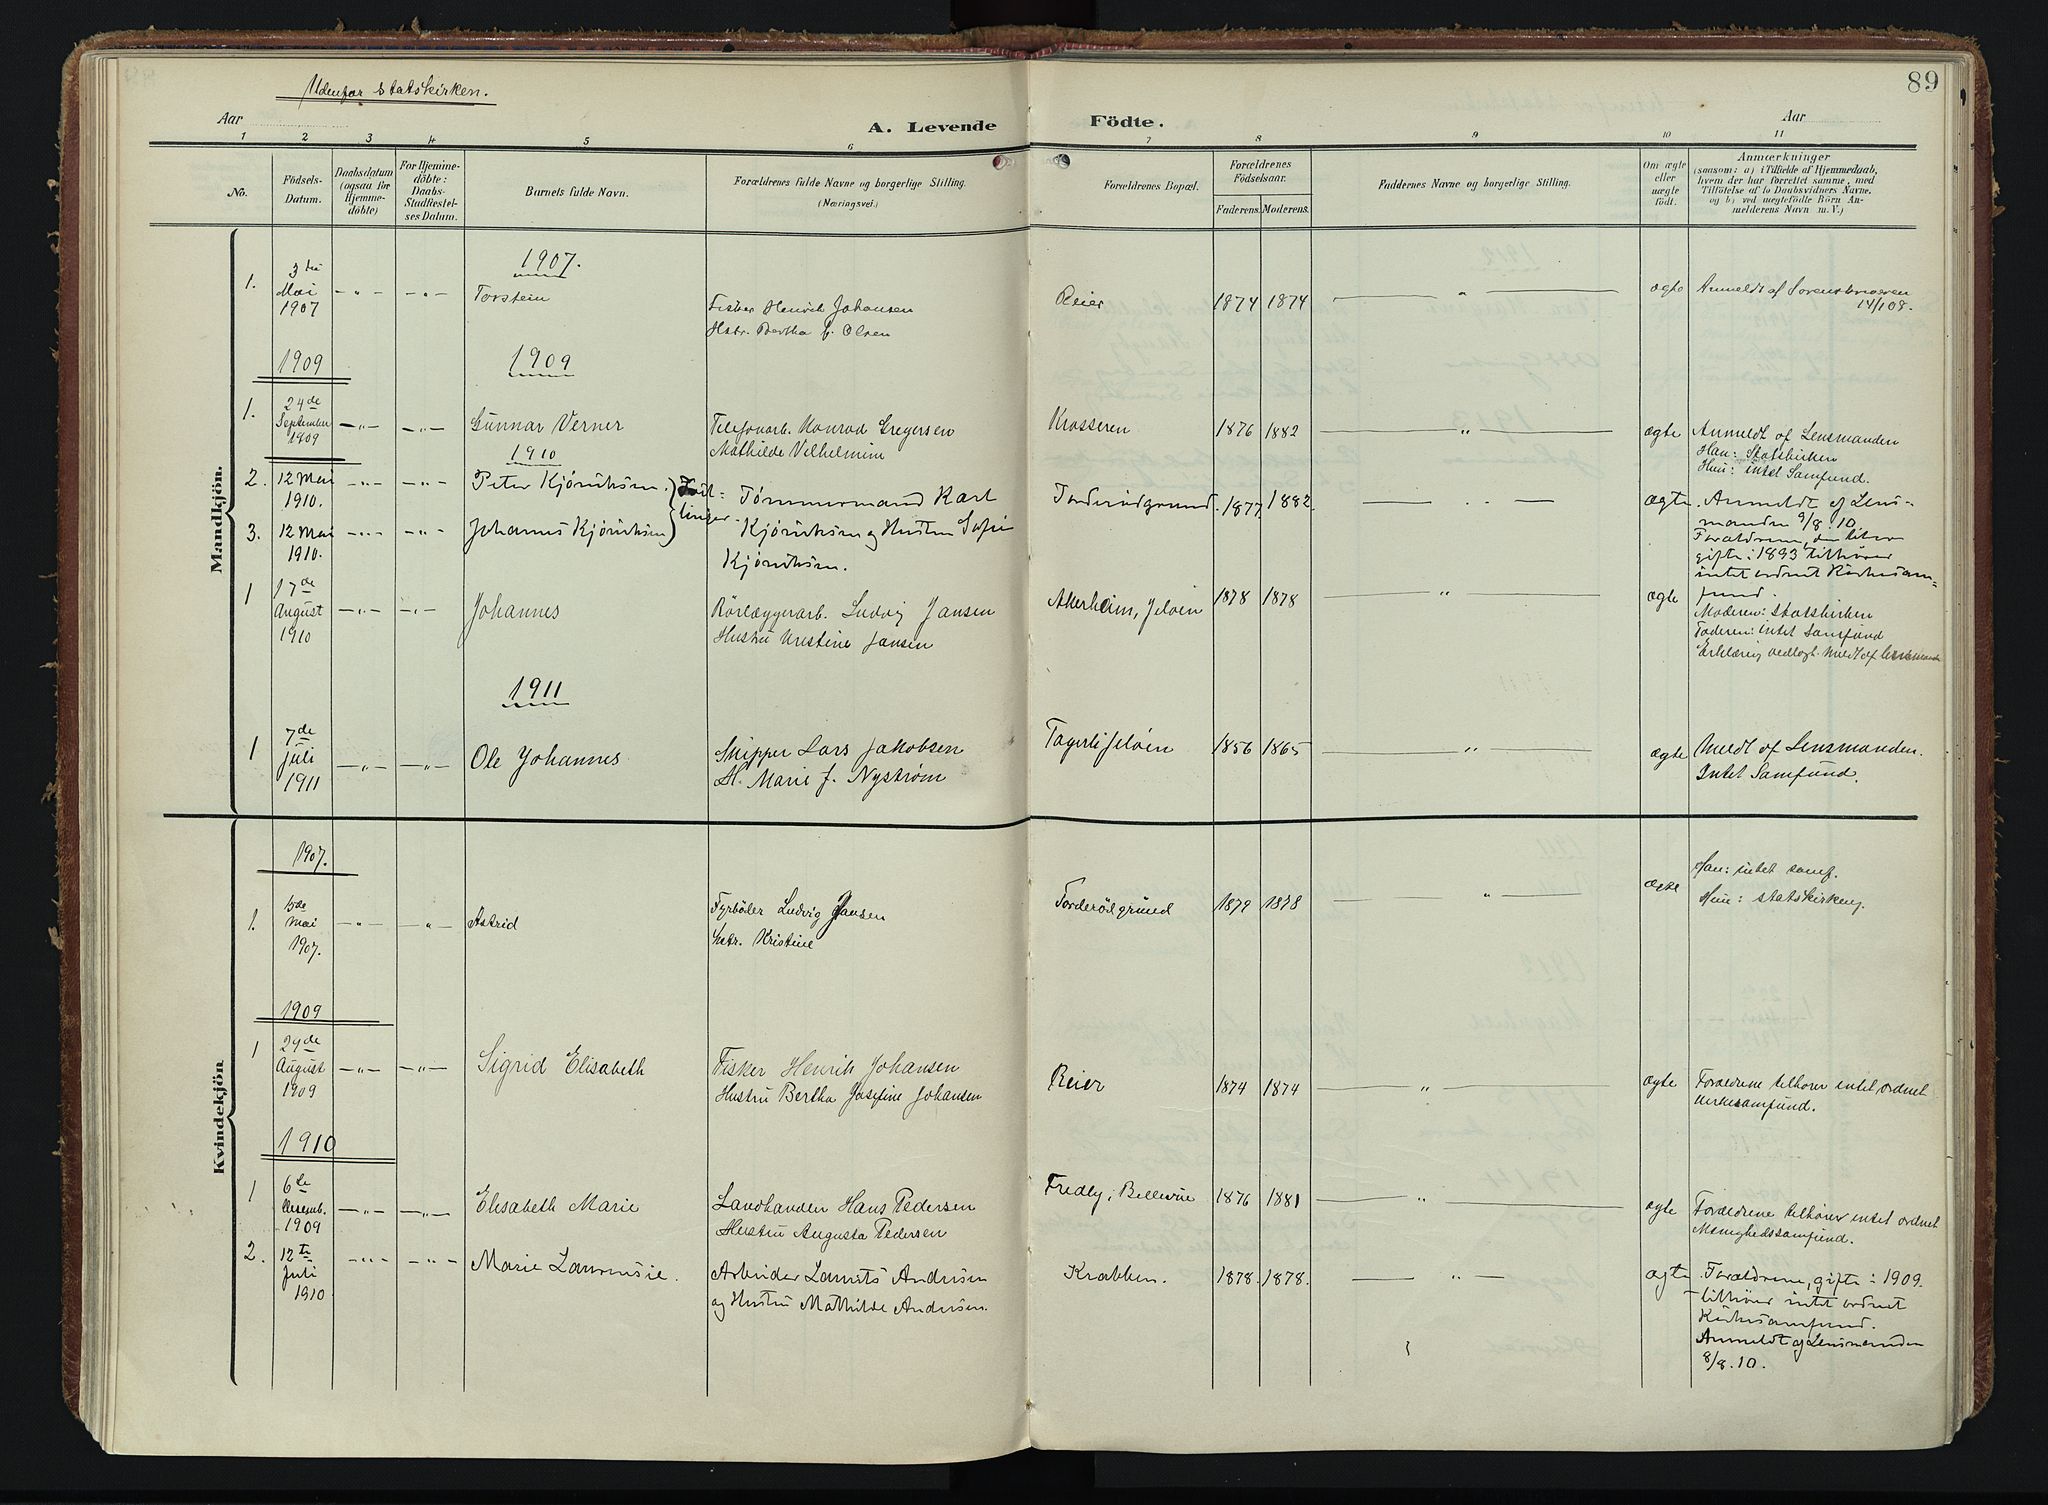 Udenfor statskirken.
89
Aar
A. Levende Födte.
Aar
1 2 3 4 5 6 7 8 9 10 11
No.
Födsels-
Datum.
Daabsdatum
(ogsaa for
Hjemme-
döbte)
For Hjemme-
döbte:
Daabs-
Stadfæstel-
ses Datum.
Barnets fulde Navn.
Forældrenes fulde Navne og borgerlige Stilling.
(Næringsvei.)
Forældrenes Bopæl.
Forældrenes
Födselsaar.
Faderens. Moderens.
Faddernes Navne og borgerlige Stilling.
Om ægte
eller
uægte
födt.
Anmærkninger
(saasom: a) i Tilfælde af Hjemmedaab,
hvem der har forrettet samme, med
Tilföielse af to Daabsvidners Navne.
og b) ved uægtefödte Börn An-
melderens Navn m. V.)
Mandkjön.
1907.
1.
3die
Mai
1907
Torstein
Fisker Henrik Johansen
Hstr. Bertha f. Olsen
Reier
1874 1874
ægte
Anmeldt af
14/1 08.
1909
1909
1.
24de
September
1909
Gunnar Verner
Telefonarb. Konrad Gregersen
Mathilde Vilhelmine
Krosseren
1876 1882
ægte
Anmeldt af Lensmanden
Han: Statskirken
Hun: intet Samfund.
1910
2. 12 Mai
1910.
Peter Kjöniksen.
3. 12 Mai
1910.
Johannes Kjöniksen
Tvil=
linger
Tømmermand Karl
Kjöniksen og Hustru Sofie
Kjöniksen.
1877. 1882.
ægte.
Anmeldt af Lens-
manden 9/8.10.
Forældrene, den
gifte: 1893 tilhører
intet ordnet Kirkesam=
fund.
1
17de
August
1910
Johannes
Rörlæggerarb. Ludvig Jansen
Hustru Kristine Jansen
Akerheim, Jeløen
1878 1878
ægte
Moderen: Statskirken
Faderen: intet Samfund
Erklæring vedlagt. Meldt af lensmanden
1911
1
7de
Juli
1911
Ole Johannes
Skipper Lars Jakobsen
H. Marie f. Nyström
Jeløen
1856 1865
ægte
Meldt af Lensmanden.
Intet Samfund.
Kvindekjön
1907.
1.
Mai
1907.
Astrid
Fyrböder Ludvig Jansen
hstr. Kristine
Torderöd grund
1879 1878
ægte
Han: intet samf.
Hun: statskirken.
1909
1
29de
August
1909
Sigrid Elisabeth
Fisker Henrik Johansen
Hustru Bertha Josefine Johansen
Reier
1874 1874
ægte
Forældrene tilhører intet ordnet
Kirkesamfund.
1910
1
6te
Desemb.
1909
Elisabeth Marie
Landhandler Hans Pedersen
Hustru Augusta Pedersen
Fredly, Bellevue
1876 1881
ægte
Forældrene tilhører intet ordnet
Menighedssamfund.
2. 12te
Juli
1910
Marie
Arbeider Laurits Andersen
og Hustru Mathilde Andersen.
Krabben.
1878. 1878.
ægte
Forældrene, gifte: 1909.
tilhører intet ordnet
Kirkesamfund.
Anmeldt af Lensmanden
8/8.10.